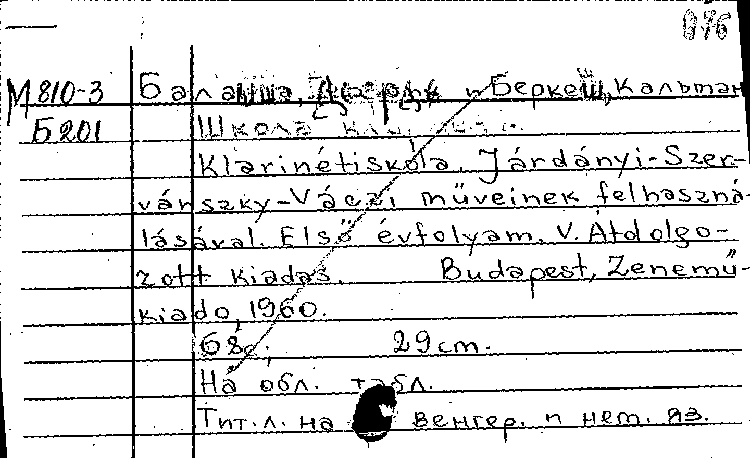 876
М810-3 Баланша, Дьердь и Беркеш, Кальман
Б201 Школа
Klarinétiskola. Járdányi-Szer-
vánszky-Váczi műveinek felhaszná-
lásával. Első évfolyam. V. Átdolgo-
zott kiadás. Budapest, Zenemű-
kiado, 1960.
68с. 29cm.
На обл. табл.
Тит.л. на венгер. и нем. яз.